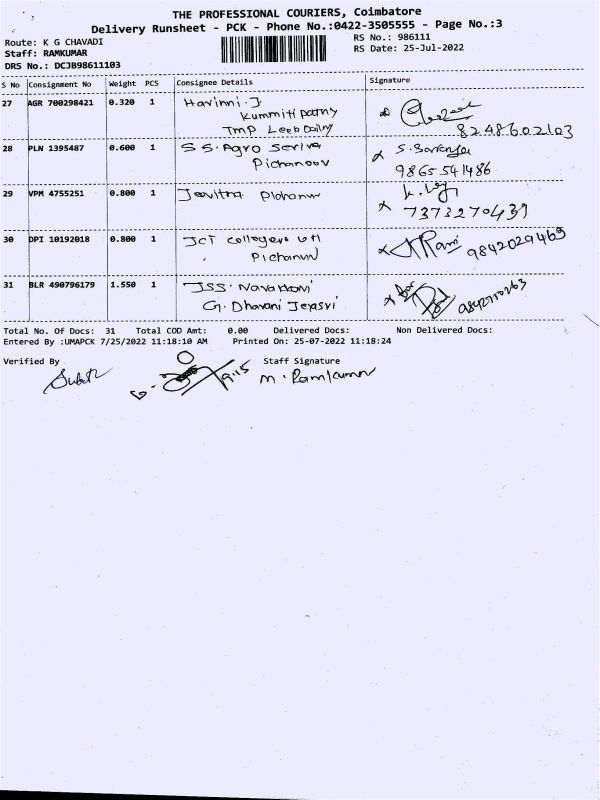 THE PROFESSIONAL COURIERS, Coimbatore
Delivery Runsheet - PCK - Phone No.:0422-3505555 - Page No.:3
Route: K G CHAVADI RS No.: 986111
Staff: RAMKUMAR RS Date: 25-Jul-2022
DRS No.: DCJB98611103
S No Consignment No Weight PCS Consignee Details Signature
27 AGR 700298421 0.320 1 Harinni.J
Kummitipathy
8248602103
28 PLN 1395487 0.600 1 S S. Agro
9865541486
29 VPM 4755251 0.800 1
7373270439
30 DPI 10192018 0.800 1 JCT 9842029469
31 BLR 490796179 1.550 1 JSS.
G. Dharani Jeyasri
Total No. Of Docs: 31 Total COD Amt: 0.00 Delivered Docs: Non Delivered Docs:
Entered By :UMAPCK 7/25/2022 11:18:10 AM Printed On: 25-07-2022 11:18:24
Verified By Staff Signature
9:15 M. Ramkumar